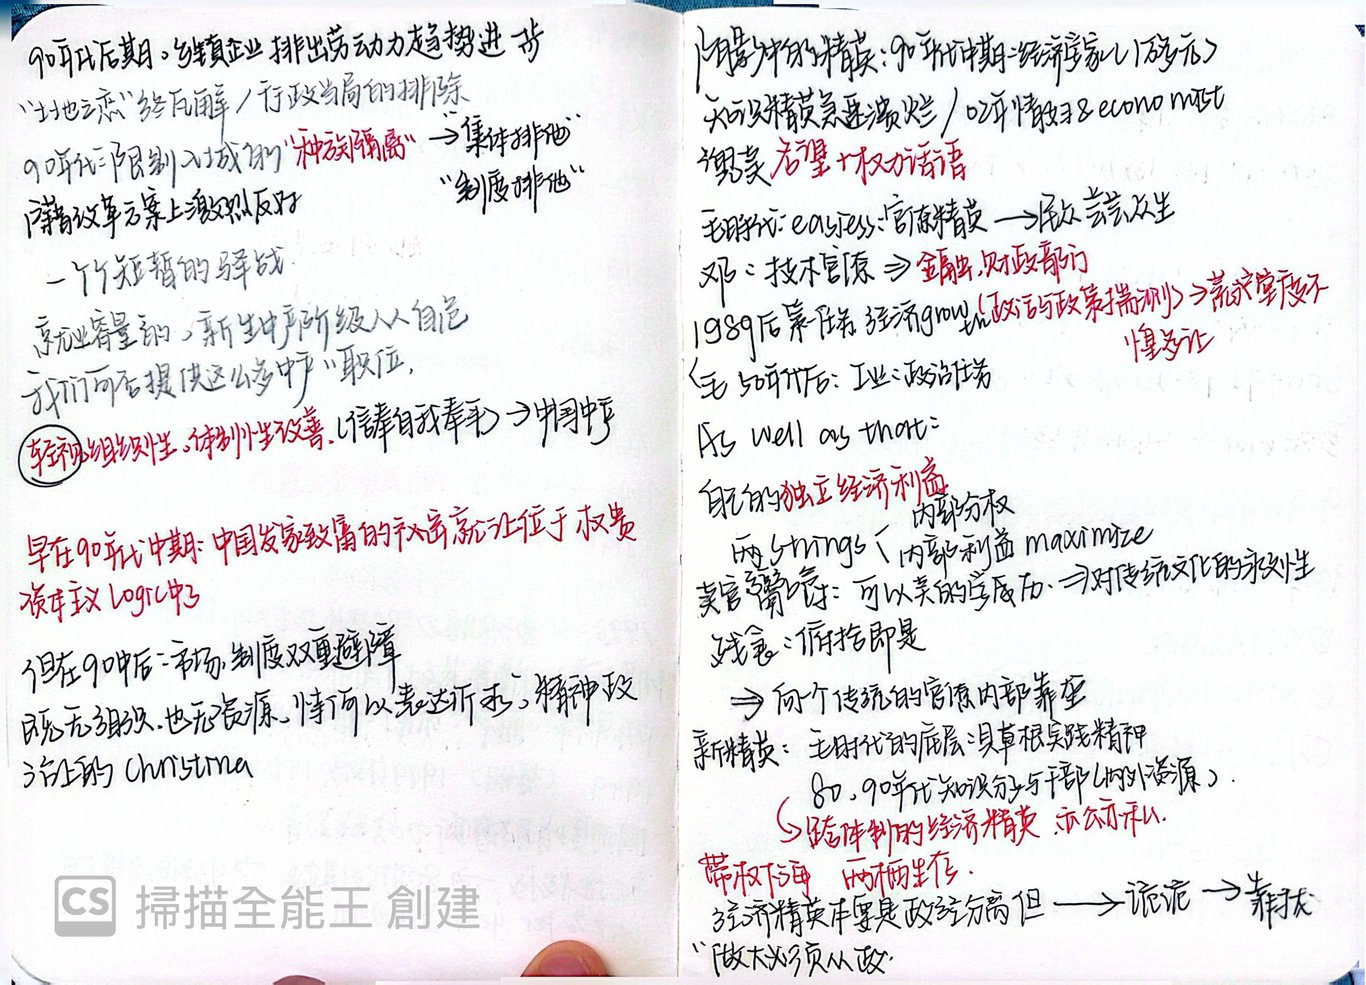 90年代后期:乡镇企业排出劳动力趋势进一步
"土地之恋"终瓦解/行政当局的排除
90年代:限制入城的"种族隔离" → "集体排他"
"制度排他"
阶层改革方案上激烈反对
一个个短暂的驿战
就业容量的,新生中产阶级人人自危
我们可否提供这么多中产"职位,
轻视组织性、体制性改善.(信奉自我奉平)→中国中产
早在90年代中期:中国发家致富的秘密就让位于权贵
资本主义Logic中了
但在90中后:市场,制度双重避障
既无组织.也无资源,恃何以表达诉求,精神政
治上的Christina
阴影中的精英:90年代中期:经济学家(1万多元)
知识精英急速溃烂/02年情妇&economist
谋卖名望+权力话语
毛时代:easiess:官僚精英→民众芸芸众生
邓:技术官僚⇒金融,财政部门
1989后第一任务经济growth(政治与政策揣测)→荒谬望度不
惶多让
(毛50年代后:工业:政治任务
As well as that:
自己的独立经济利益
内部分权
两strings〈内部利益maximize
卖官鬻爵:可以美的学历.⇒对传统文化的永别性
残忍:俯拾即是
⇒向个传统的官僚内部靠垄
新精英:毛时代的底层:具草根实践精神
80、90年代知识分子与干部(内外资源).
跨体制的经济精英.亦公亦私.
带权下海 两栖生存.
经济精英本要是政经分离但→诡谲→靠拢
"做大必须从政.
CS 掃描全能王 創建